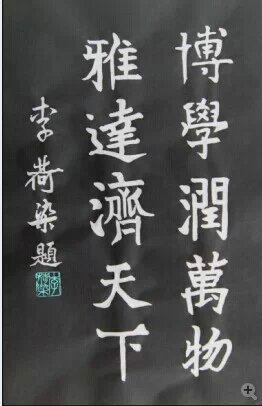 博學潤萬物
雅達濟天下
李荷染題